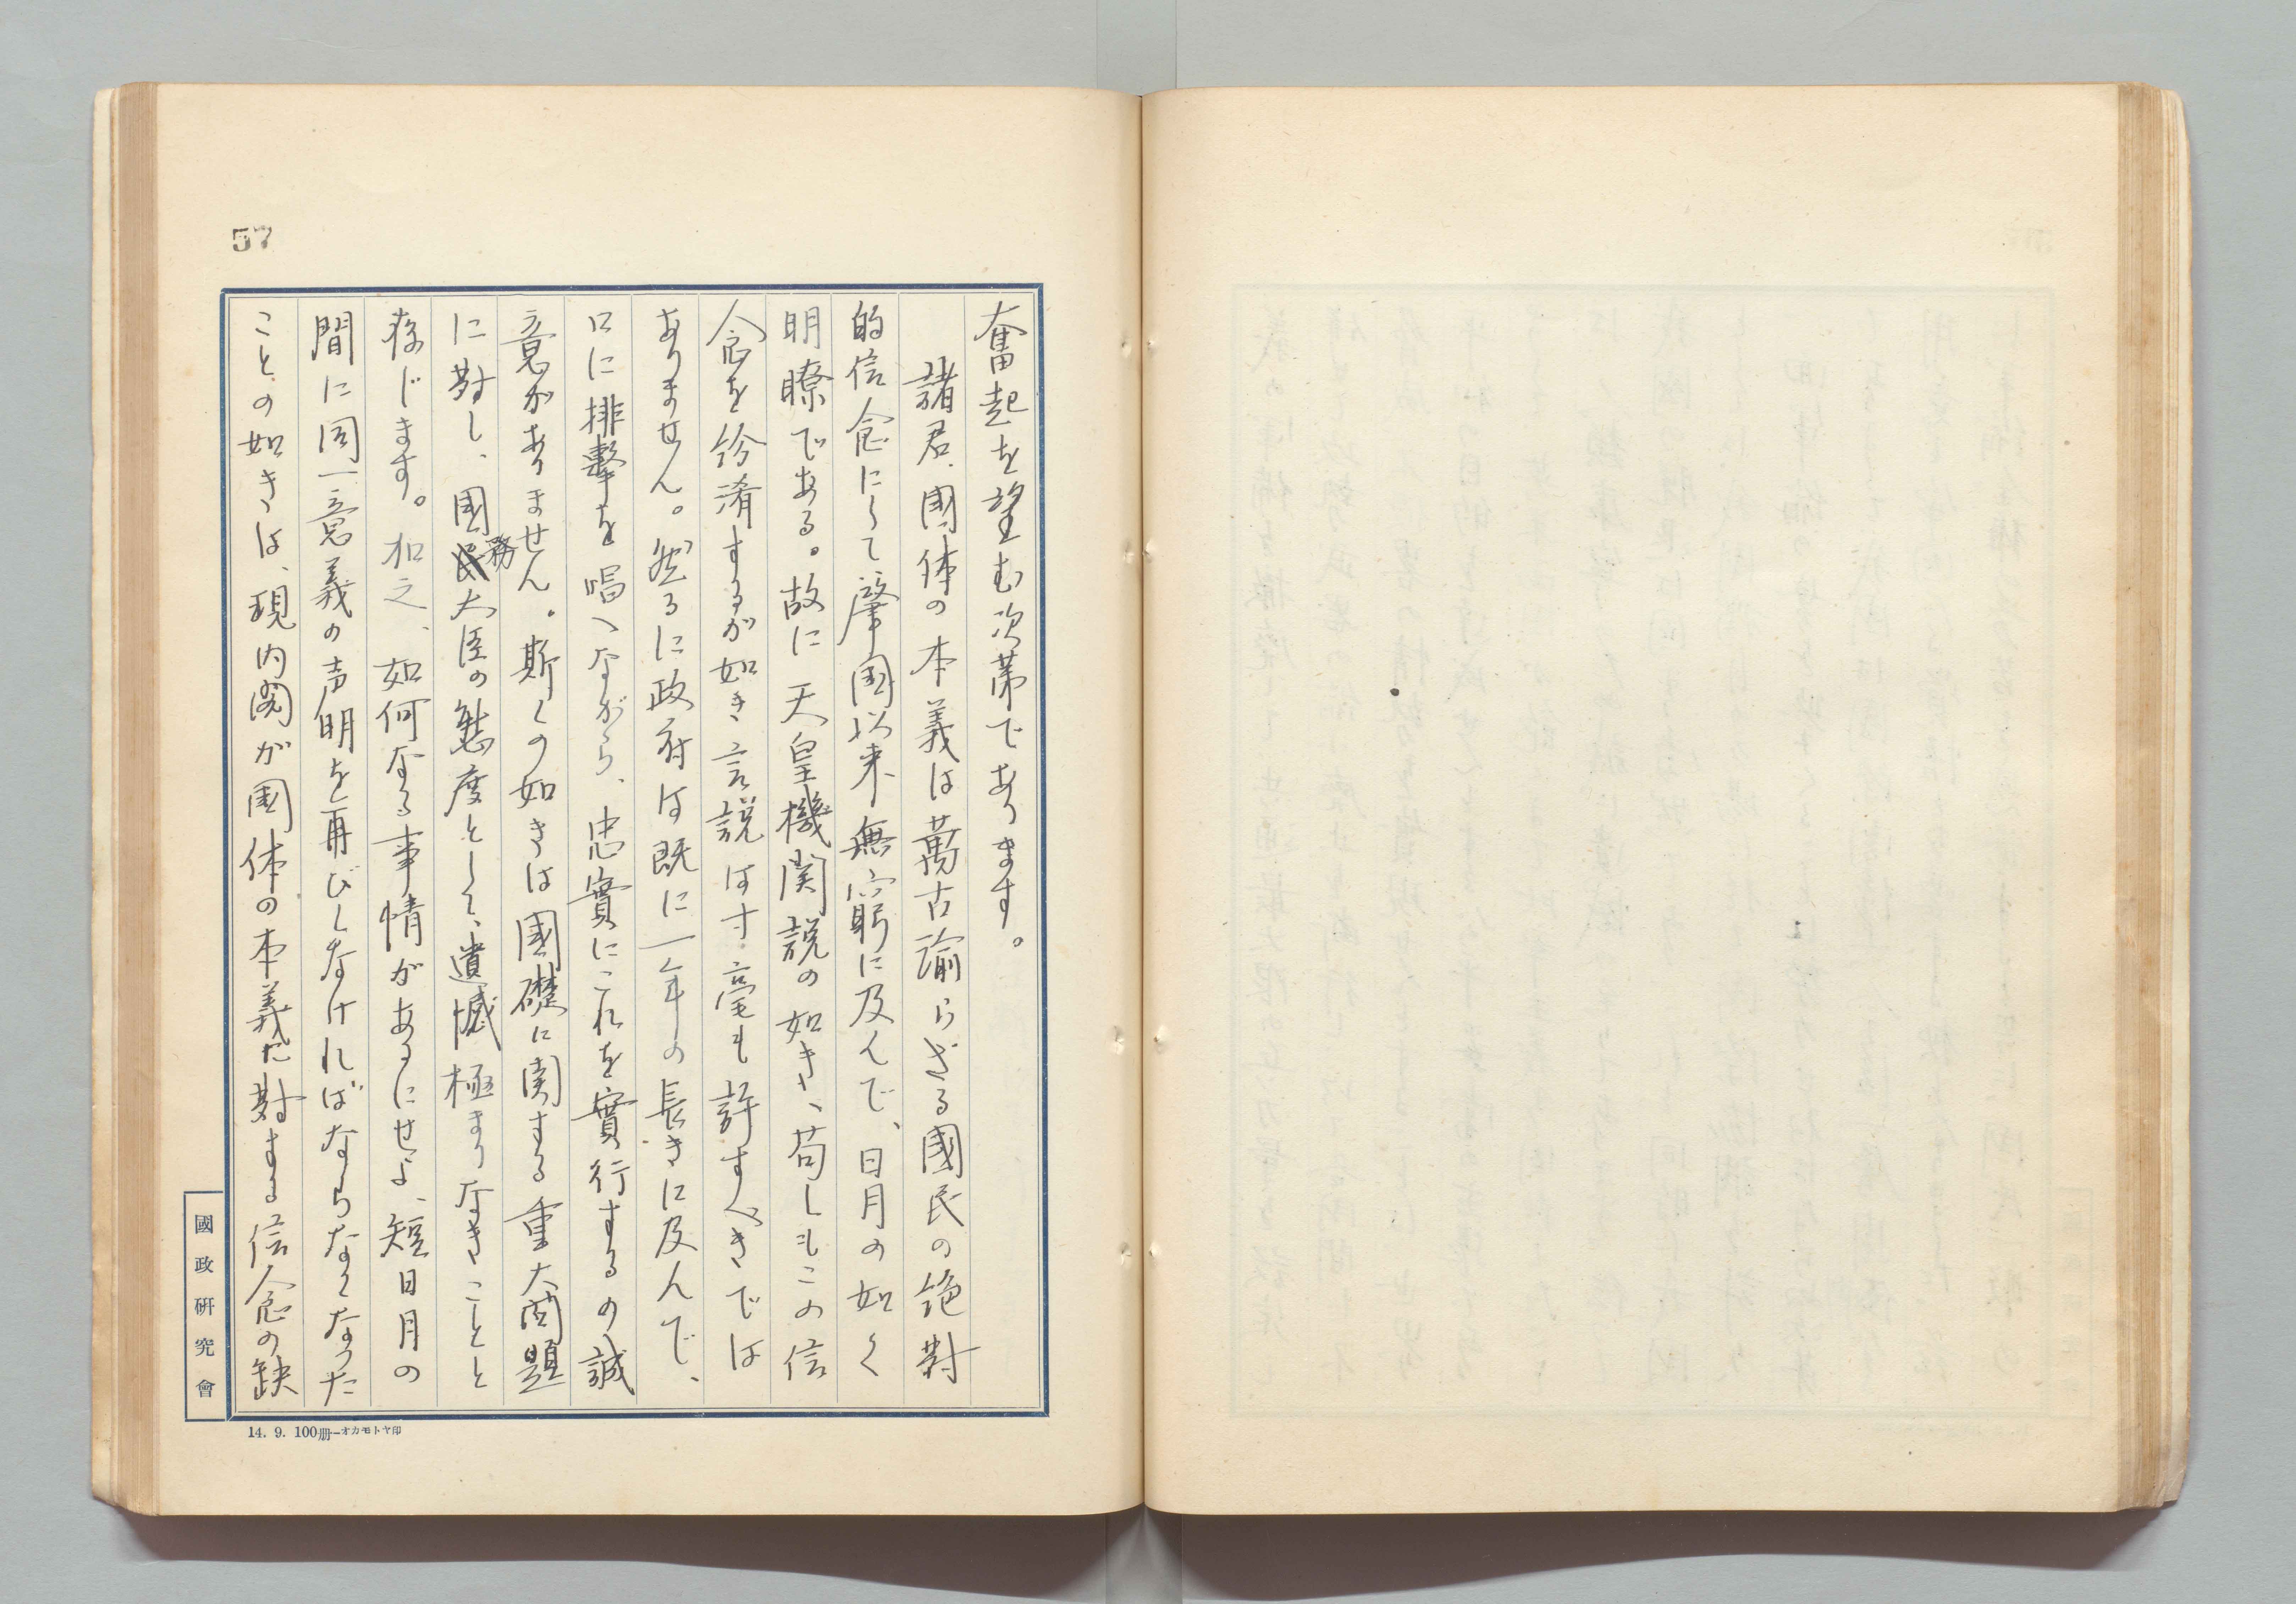 57
奮起を望む次第であります。
諸君、國体の本義は萬古諭らざる國民の絶對
的信念にして肇国以来無窮に及んで、日月の如く
明瞭である。故に天皇機関説の如き、苟しもこの信
念を紛淆するが如き言説は寸毫も許すべきでは
ありません。然るに政府は既に一年の長きに及んで、
口に排撃を唱へながら、忠實にこれを實行するの誠
意がありません。斯くの如きは國礎に関する重大問題
に對し、國務大臣の態度として、遺憾極まりなきことと
存じます。加之、如何なる事情があるにせよ、短日月の
間に同一意義の声明を再びしなければならなくなつた
ことの如きは、現内閣が国体の本義に對する信念の缺
國政研究會
14. 9. 100冊—オカモトヤ印